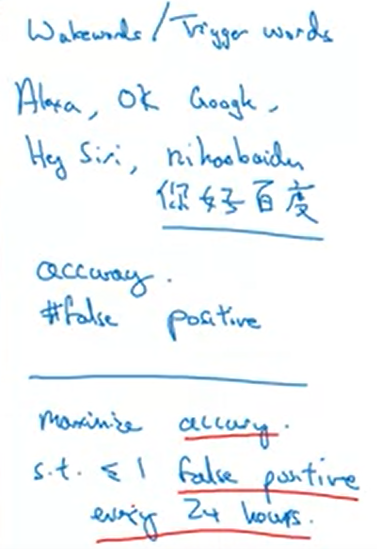 Wakewords / Trigger words
Alexa, OK Google,
Hey Siri, nihaobaidu
你好百度
accuracy.
#false positive
Maximize accuracy.
s.t. ≤ 1 false positive
every 24 hours.